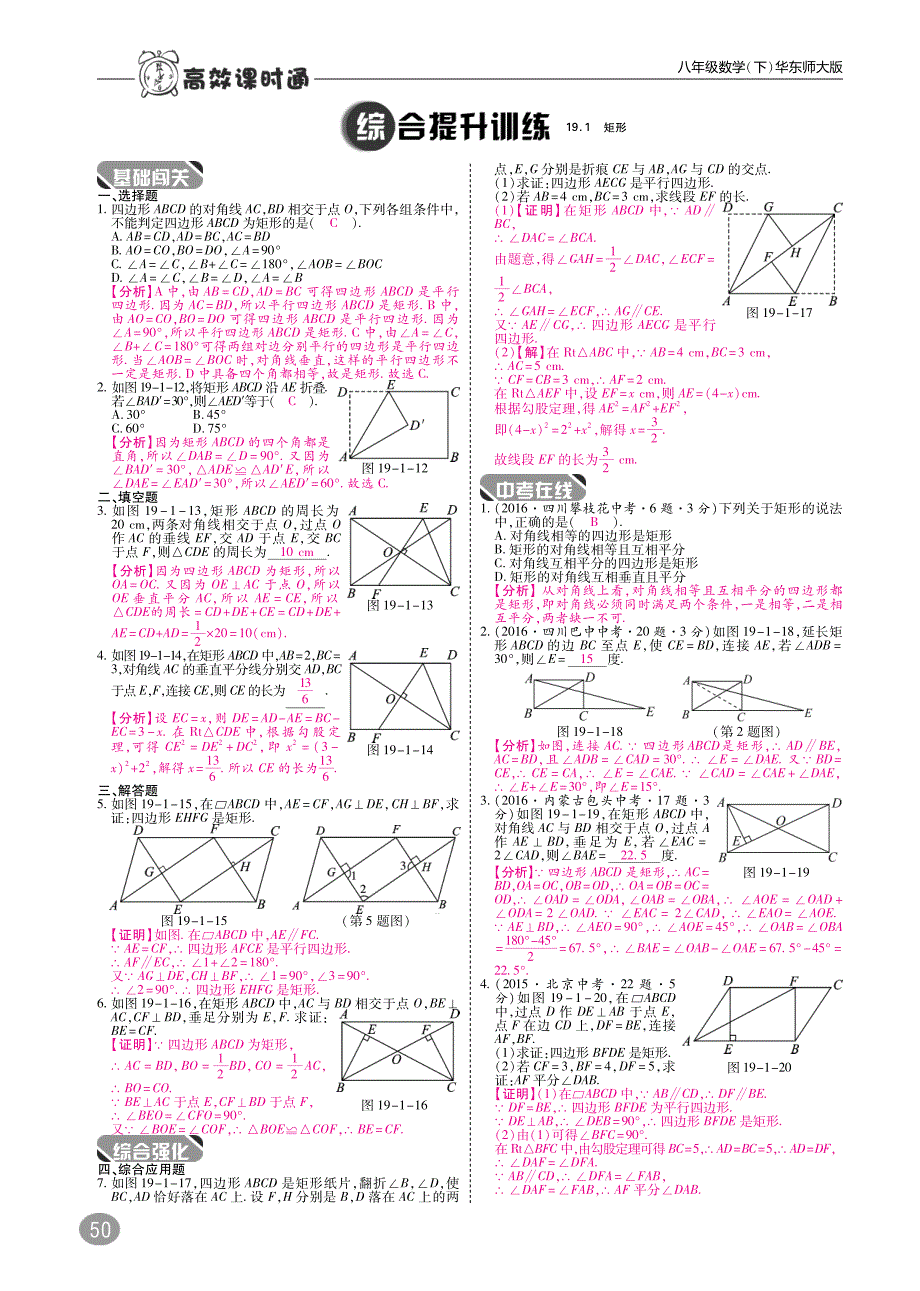 高效课时通
八年级数学(下)华东师大版
综合提升训练 19.1 矩形
基础闯关
一、选择题
1. 四边形 ABCD 的对角线 AC,BD 相交于点 O,下列各组条件中,
不能判定四边形 ABCD 为矩形的是( C ).
A. AB=CD,AD=BC,AC=BD
B. AO=CO,BO=DO,∠A=90°
C. ∠A=∠C,∠B+∠C=180°,∠AOB=∠BOC
D. ∠A=∠C,∠B=∠D,∠A=∠B
【分析】A 中,由 AB=CD,AD=BC 可得四边形 ABCD 是平行
四边形. 因为 AC=BD,所以平行四边形 ABCD 是矩形. B 中,
由 AO=CO,BO=DO 可得四边形 ABCD 是平行四边形. 因为
∠A=90°,所以平行四边形 ABCD 是矩形. C 中,由∠A=∠C,
∠B+∠C=180°可得两组对边分别平行的四边形是平行四边
形. 当∠AOB=∠BOC 时,对角线垂直,这样的平行四边形不
一定是矩形. D 中具备四个角都相等,故是矩形. 故选 C.
2. 如图 19-1-12,将矩形 ABCD 沿 AE 折叠.
若∠BAD′=30°,则∠AED′等于( C ).
A. 30° B. 45°
C. 60° D. 75°
【分析】因为矩形 ABCD 的四个角都是
直角,所以∠DAB=∠D=90°. 又因为
∠BAD′=30°,△ADE≌△AD′E,所以
∠DAE=∠EAD′=30°,所以∠AED′=60°. 故选 C.
D E C
D′
A B
图 19-1-12
二、填空题
3. 如图 19-1-13,矩形 ABCD 的周长为
20 cm,两条对角线相交于点 O,过点 O
作 AC 的垂线 EF,交 AD 于点 E,交 BC
于点 F,则△CDE 的周长为 10 cm .
【分析】因为四边形 ABCD 为矩形,所以
OA=OC. 又因为 OE⊥AC 于点 O,所以
OE 垂直平分 AC,所以 AE=CE,所以
△CDE的周长=CD+DE+CE=CD+DE+
AE=CD+AD=1/2×20=10(cm).
A E D
O
B F C
图 19-1-13
4. 如图 19-1-14,在矩形 ABCD 中,AB=2,BC=
3,对角线 AC 的垂直平分线分别交 AD,BC
于点 E,F,连接 CE,则 CE 的长为 13/6 .
【分析】设 EC=x,则 DE=AD-AE=BC-
EC=3-x. 在 Rt△CDE 中,根据勾股定
理,可得 CE²=DE²+DC²,即 x²=(3-
x)²+2²,解得 x=13/6. 所以 CE 的长为13/6.
A E D
O
B F C
图 19-1-14
三、解答题
5. 如图 19-1-15,在▱ABCD 中,AE=CF,AG⊥DE,CH⊥BF,求
证:四边形 EHFG 是矩形.
D F C
G H
A E B
图 19-1-15
D F C
G 1 3 H
2
A E B
(第 5 题图)
【证明】如图. 在▱ABCD 中,AE∥FC.
∵ AE=CF,∴ 四边形 AFCE 是平行四边形.
∴ AF∥EC,∴ ∠1+∠2=180°.
又∵ AG⊥DE,CH⊥BF,∴ ∠1=90°,∠3=90°.
∴ ∠2=90°. ∴ 四边形 EHFG 是矩形.
6. 如图 19-1-16,在矩形 ABCD 中,AC 与 BD 相交于点 O,BE⊥
AC,CF⊥BD,垂足分别为 E,F. 求证:
BE=CF.
【证明】∵ 四边形 ABCD 为矩形,
∴ AC=BD, BO=1/2BD, CO=1/2AC,
∴ BO=CO.
∵ BE⊥AC 于点 E,CF⊥BD 于点 F,
∴ ∠BEO=∠CFO=90°.
又∵ ∠BOE=∠COF,∴ △BOE≌△COF,∴ BE=CF.
A D
E F
O
B C
图 19-1-16
综合强化
四、综合应用题
7. 如图 19-1-17,四边形 ABCD 是矩形纸片,翻折∠B,∠D,使
BC,AD 恰好落在 AC 上. 设 F,H 分别是 B,D 落在 AC 上的两
点,E,G 分别是折痕 CE 与 AB,AG 与 CD 的交点.
(1)求证:四边形 AECG 是平行四边形.
(2)若 AB=4 cm,BC=3 cm,求线段 EF 的长.
(1)【证明】在矩形 ABCD 中,∵ AD∥
BC,
∴ ∠DAC=∠BCA.
由题意,得∠GAH=1/2∠DAC,∠ECF=
1/2∠BCA,
∴ ∠GAH=∠ECF,∴ AG∥CE.
又∵ AE∥CG,∴ 四边形 AECG 是平行
四边形.
D G C
F H
A E B
图 19-1-17
(2)【解】在 Rt△ABC 中,∵ AB=4 cm,BC=3 cm,
∴ AC=5 cm.
∵ CF=CB=3 cm,∴ AF=2 cm.
在 Rt△AEF 中,设 EF=x cm,则 AE=(4-x)cm.
根据勾股定理,得 AE²=AF²+EF²,
即(4-x)²=2²+x²,解得 x=3/2.
故线段 EF 的长为3/2 cm.
中考在线
1. (2016·四川攀枝花中考·6 题·3 分)下列关于矩形的说法
中,正确的是( B ).
A. 对角线相等的四边形是矩形
B. 矩形的对角线相等且互相平分
C. 对角线互相平分的四边形是矩形
D. 矩形的对角线互相垂直且平分
【分析】从对角线上看,对角线相等且互相平分的四边形都
是矩形,即对角线必须同时满足两个条件,一是相等,二是相
互平分,两者缺一不可.
2. (2016·四川巴中中考·20 题·3 分)如图 19-1-18,延长矩
形 ABCD 的边 BC 至点 E,使 CE=BD,连接 AE,若∠ADB=
30°,则∠E= 15 度.
A D
B C E
图 19-1-18
A D
B C E
(第 2 题图)
【分析】如图,连接 AC. ∵ 四边形 ABCD是矩形,∴ AD∥BE,
AC=BD,且∠ADB=∠CAD=30°. ∴ ∠E=∠DAE. 又∵ BD=
CE,∴ CE=CA,∴ ∠E=∠CAE. ∵ ∠CAD=∠CAE+∠DAE,
∴ ∠E+∠E=30°,即∠E=15°.
3. (2016·内蒙古包头中考·17 题·3
分)如图 19-1-19,在矩形 ABCD 中,
对角线 AC 与 BD 相交于点 O,过点 A
作 AE⊥BD,垂足为 E,若∠EAC=
2∠CAD,则∠BAE= 22. 5 度.
A D
O
E
B C
图 19-1-19
【分析】∵ 四边形 ABCD 是矩形,∴ AC=
BD,OA=OC,OB=OD,∴ OA=OB=OC=
OD,∴ ∠OAD=∠ODA,∠OAB=∠OBA,∴ ∠AOE=∠OAD+
∠ODA=2∠OAD. ∵ ∠EAC=2∠CAD,∴ ∠EAO=∠AOE.
∵ AE⊥BD,∴ ∠AEO=90°,∴ ∠AOE=45°,∴ ∠OAB=∠OBA
=(180°-45°)/2=67. 5°,∴ ∠BAE=∠OAB-∠OAE=67. 5°-45°=
22. 5°.
4. (2015·北京中考·22 题·5
分)如图 19-1-20,在▱ABCD
中,过点 D 作 DE⊥AB 于点 E,
点 F 在边 CD 上,DF=BE,连接
AF,BF.
(1)求证:四边形 BFDE 是矩形.
(2)若 CF=3,BF=4,DF=5,求
证:AF 平分∠DAB.
D F C
A E B
图 19-1-20
【证明】(1)在▱ABCD 中,∵ AB∥CD,∴ DF∥BE.
∵ DF=BE,∴ 四边形 BFDE 为平行四边形.
∵ DE⊥AB,∴ ∠DEB=90°,∴ 四边形 BFDE 是矩形.
(2)由(1)可得∠BFC=90°.
在Rt△BFC 中,由勾股定理可得 BC=5,∴ AD=BC=5,∴ AD=DF,
∴ ∠DAF=∠DFA.
∵ AB∥CD,∴ ∠DFA=∠FAB,
∴ ∠DAF=∠FAB,∴ AF 平分∠DAB.
50